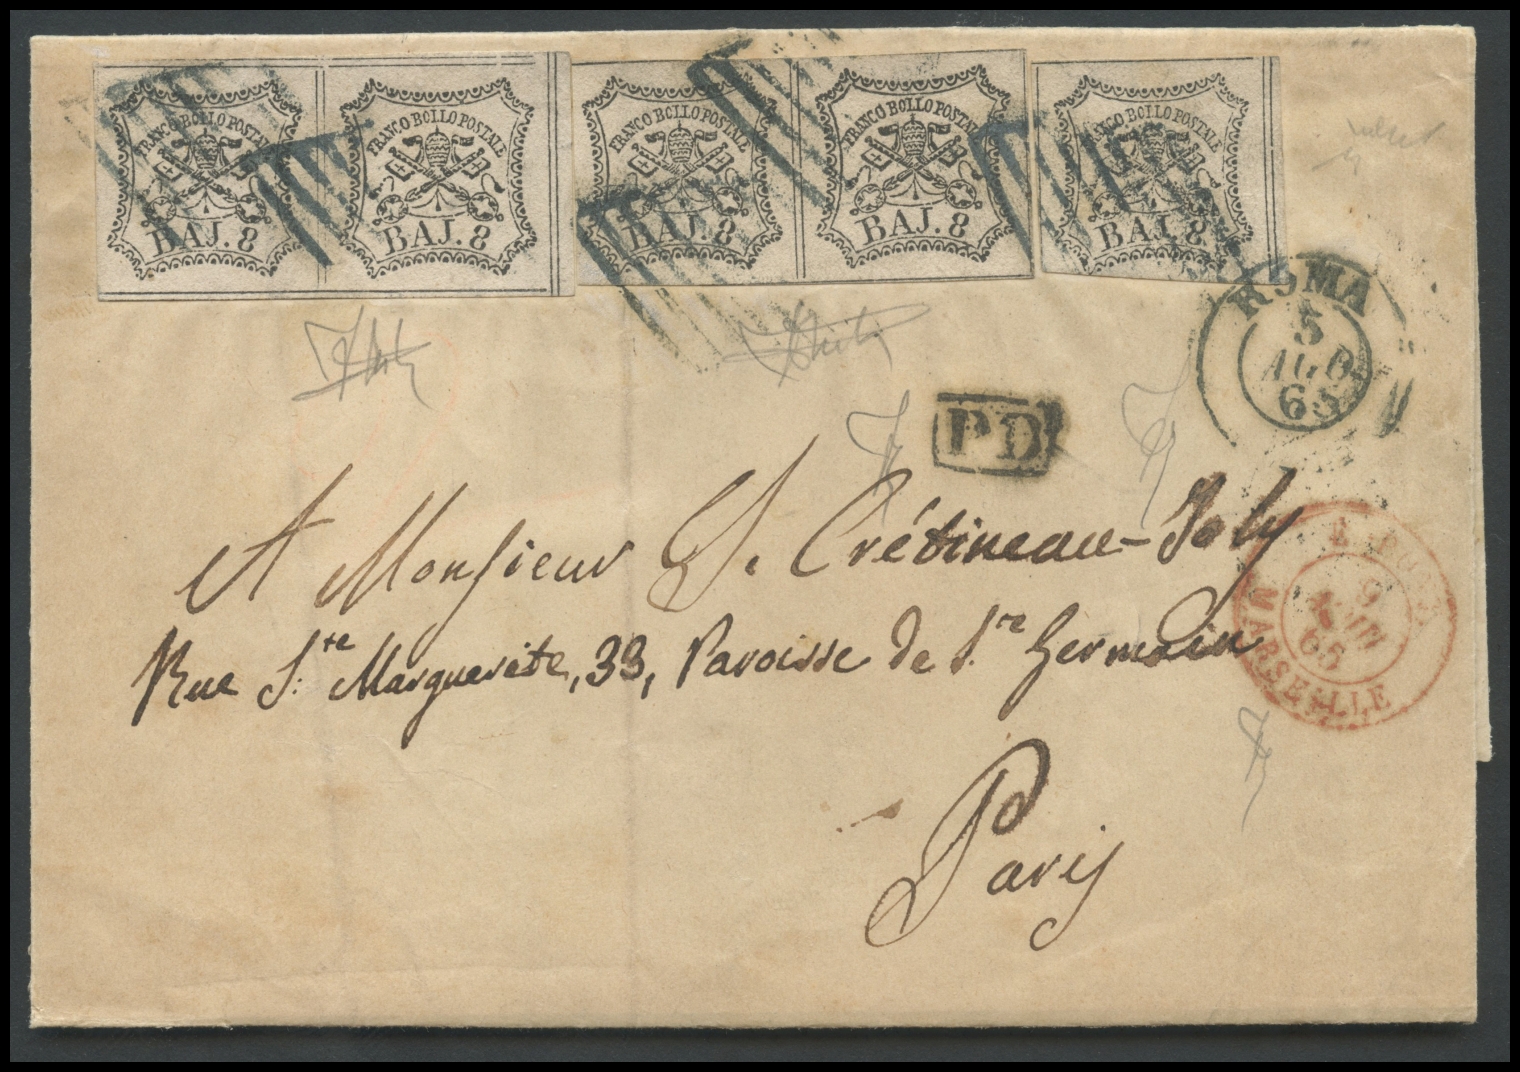 FRANCO BOLLO POSTALE
BAJ. 8
FRANCO BOLLO POSTALE
BAJ. 8
FRANCO BOLLO POSTALE
BAJ. 8
FRANCO BOLLO POSTALE
BAJ. 8
FRANCO BOLLO POSTALE
BAJ. 8
ROMA
5
65
P D
A Monsieur J. Crétineau-Joly
MARSEILLE
Rue S.te Marguerite, 33, Paroisse de S.re Germain
Paris